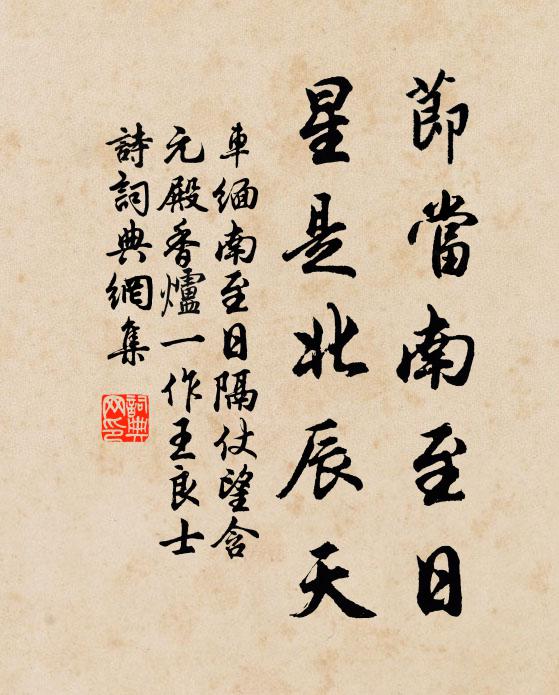 節當南至日
星是北辰天
車緬南至日隔仗望含
元殿香爐一作王良士
詩詞典網集
詞典
网印